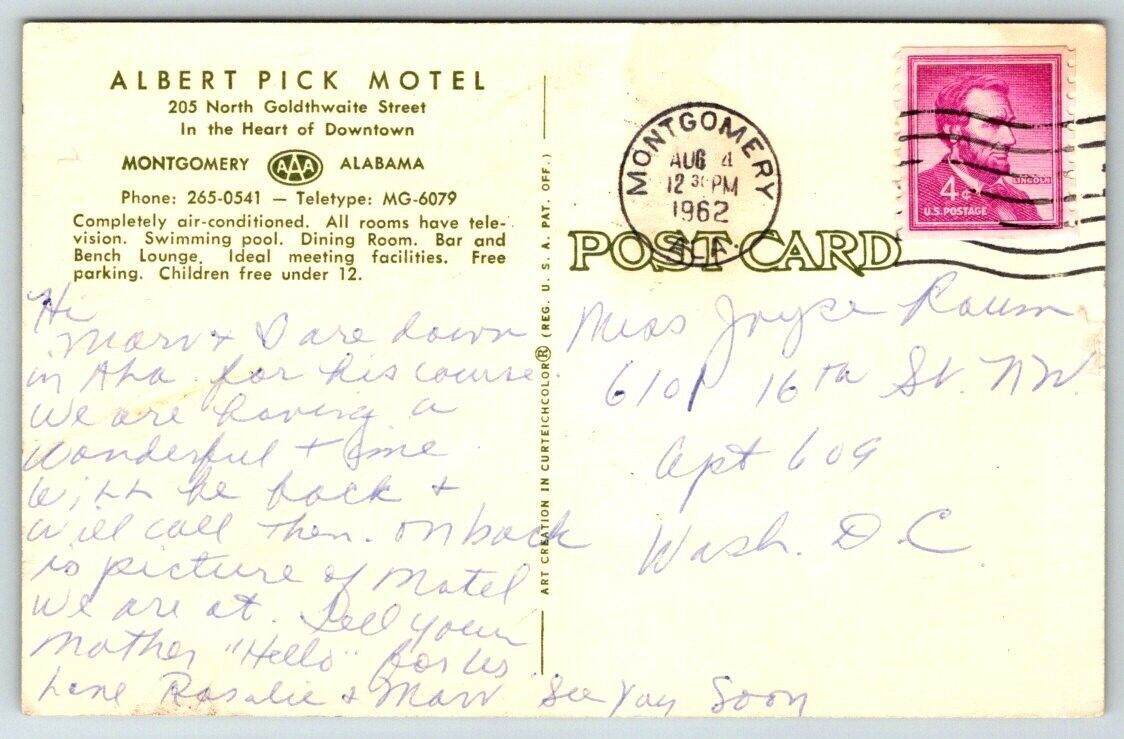 ALBERT PICK MOTEL
205 North Goldthwaite Street
In the Heart of Downtown
MONTGOMERY AAA ALABAMA
Phone: 265-0541 — Teletype: MG-6079
Completely air-conditioned. All rooms have tele-
vision. Swimming pool. Dining Room. Bar and
Bench Lounge. Ideal meeting facilities. Free
parking. Children free under 12.
Hi
Marv + I are down
in Ala. for his course.
We are having a
wonderful time.
Will be back +
will call then. On back
is picture of Motel
we are at. Tell your
Mother "Hello" for us
Love Rosalie + Marv See You Soon
ART CREATION IN CURTEICHCOLOR® (REG. U. S. A. PAT. OFF.)
MONTGOMERY
AUG 4
12 30 PM
1962
ALA
4¢
LINCOLN
U.S. POSTAGE
POST CARD
Miss Joyce
6101 16th St. NW.
Apt 609
Wash. D.C.